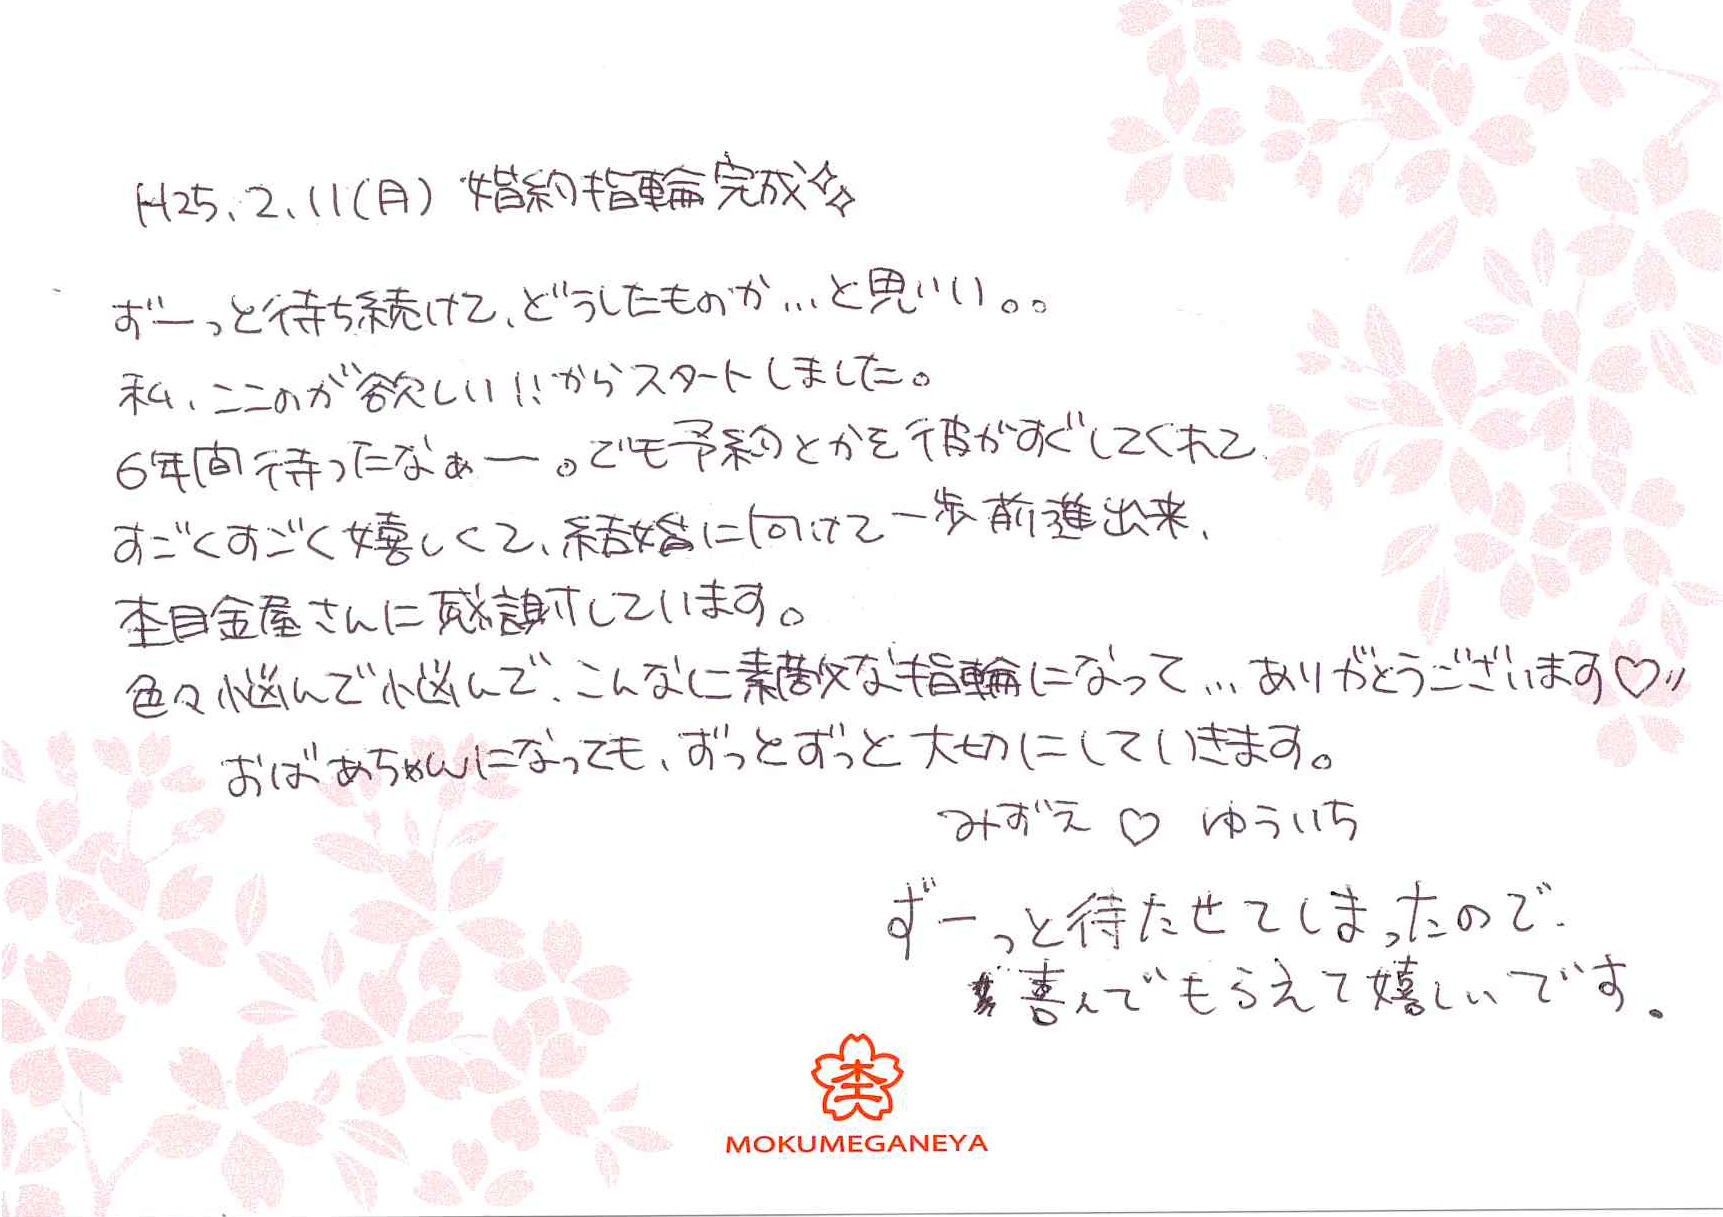 H25.2.11(月) 婚約指輪完成
ずーっと待ち続けて、どうしたものか…と思いい。。
私、ここのが欲しい!!からスタートしました。
6年間待ったなぁー。でも予約とかを彼がすぐしてくれて
すごくすごく嬉しくて、結婚に向けて一歩前進出来、
杢目金屋さんに感謝しています。
色々悩んで悩んで、こんなに素敵な指輪になって…ありがとうございます♡〃
おばあちゃんになっても、ずっとずっと大切にしていきます。
みずえ ♡ ゆういち
ずーっと待たせてしまったので、
喜んでもらえて嬉しいです。
杢
MOKUMEGANEYA